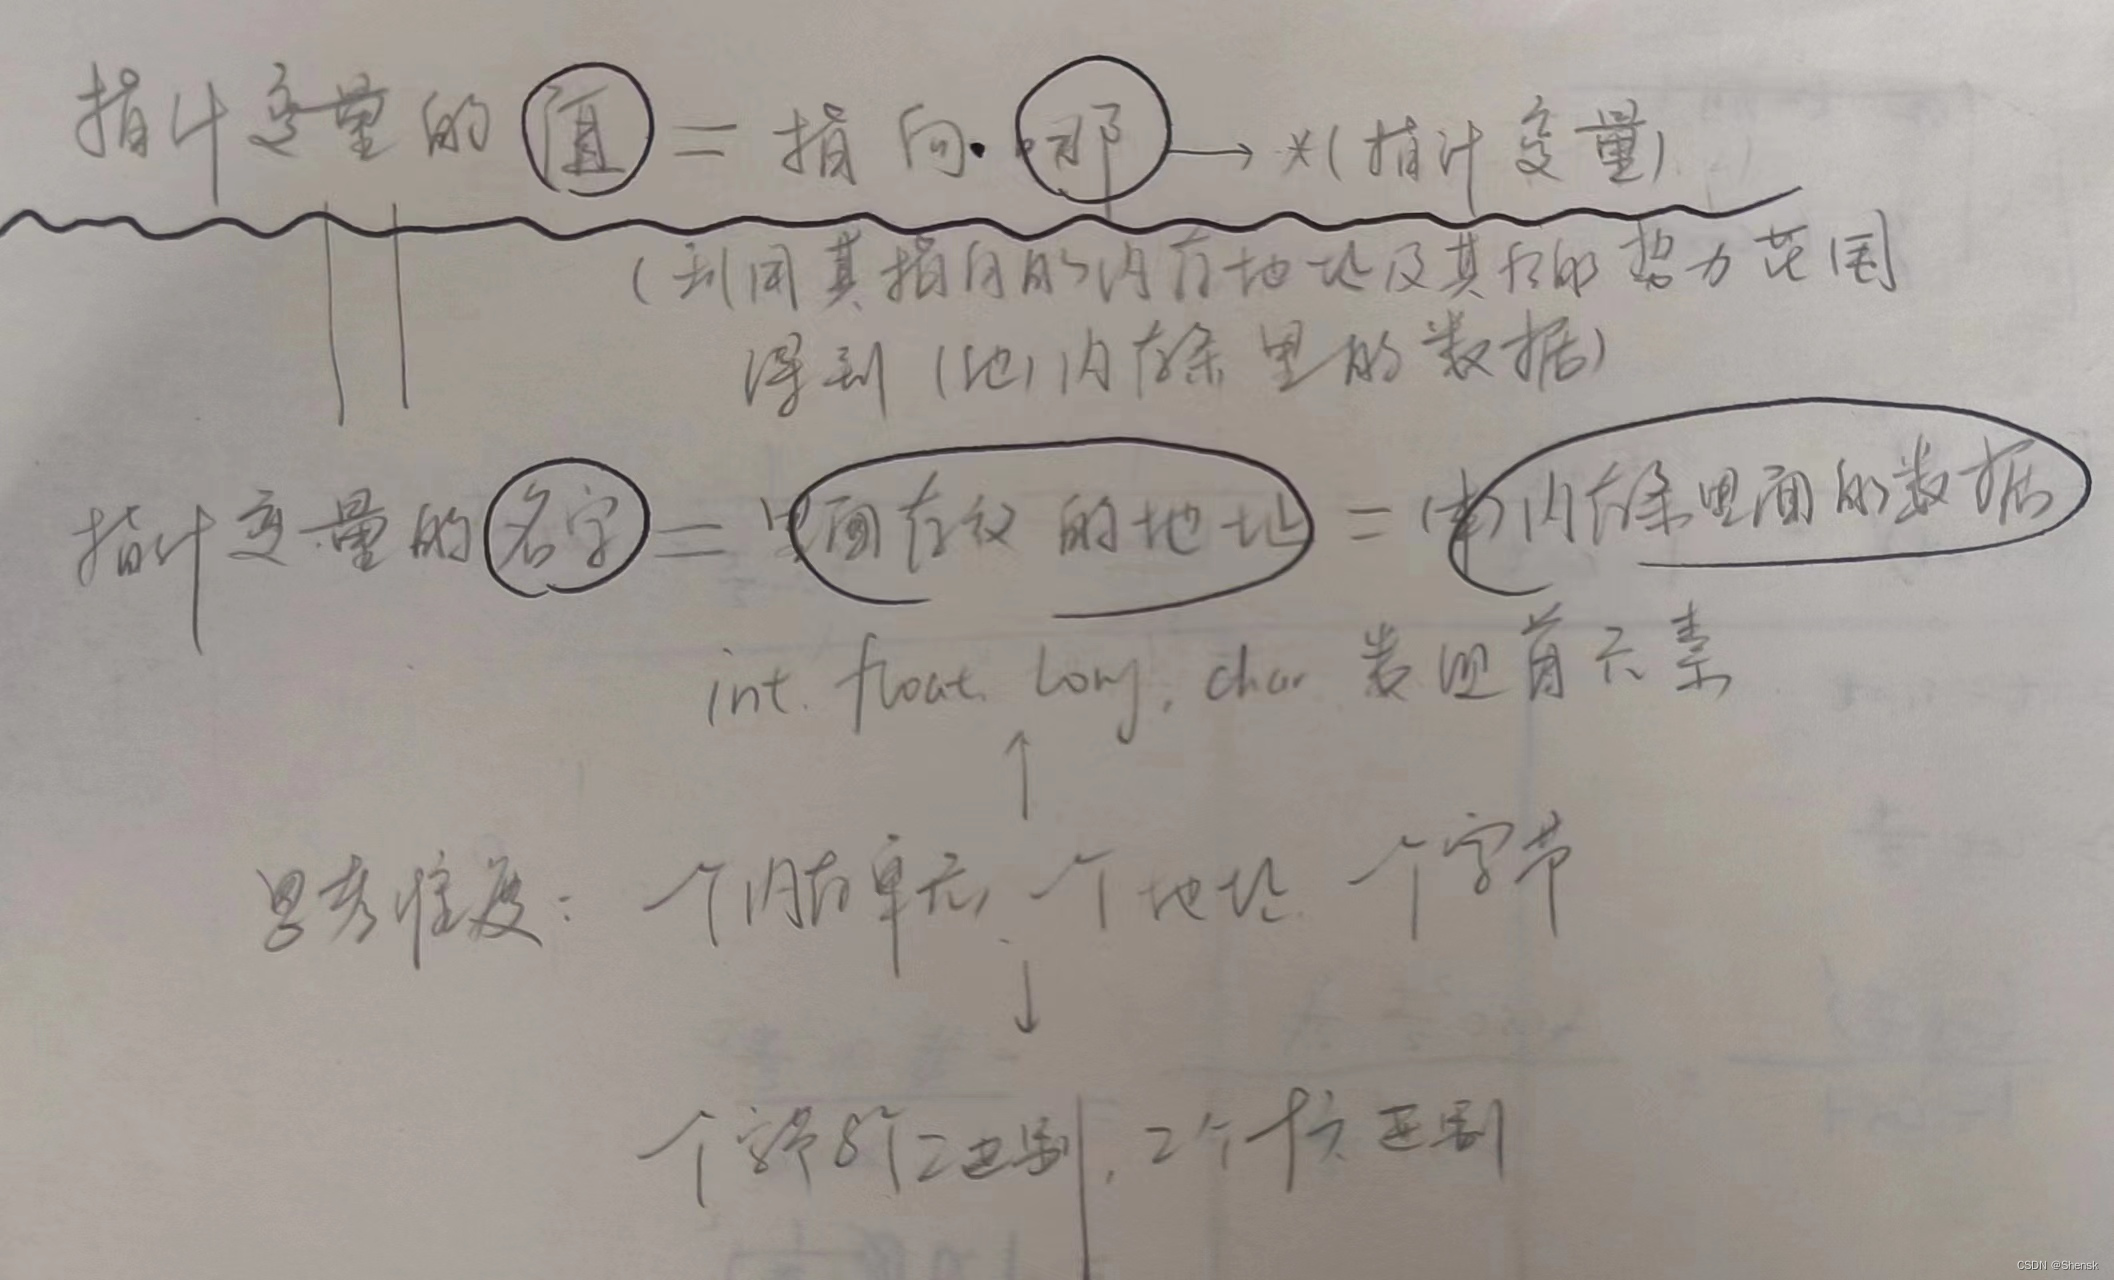 指针变量的值 = 指向·哪 → *(指针变量)
(利用其指向的内存地址及其后的势力范围
得到(他)内存条里的数据)
指针变量的名字 = 里面存放的地址 = 内存条里面的数据
int. float. long. char. 类型首元素
思考维度: 一个内存单元, 一个地址. 一个字节
一个字节8个二进制, 2个十六进制
CSDN @Shensk